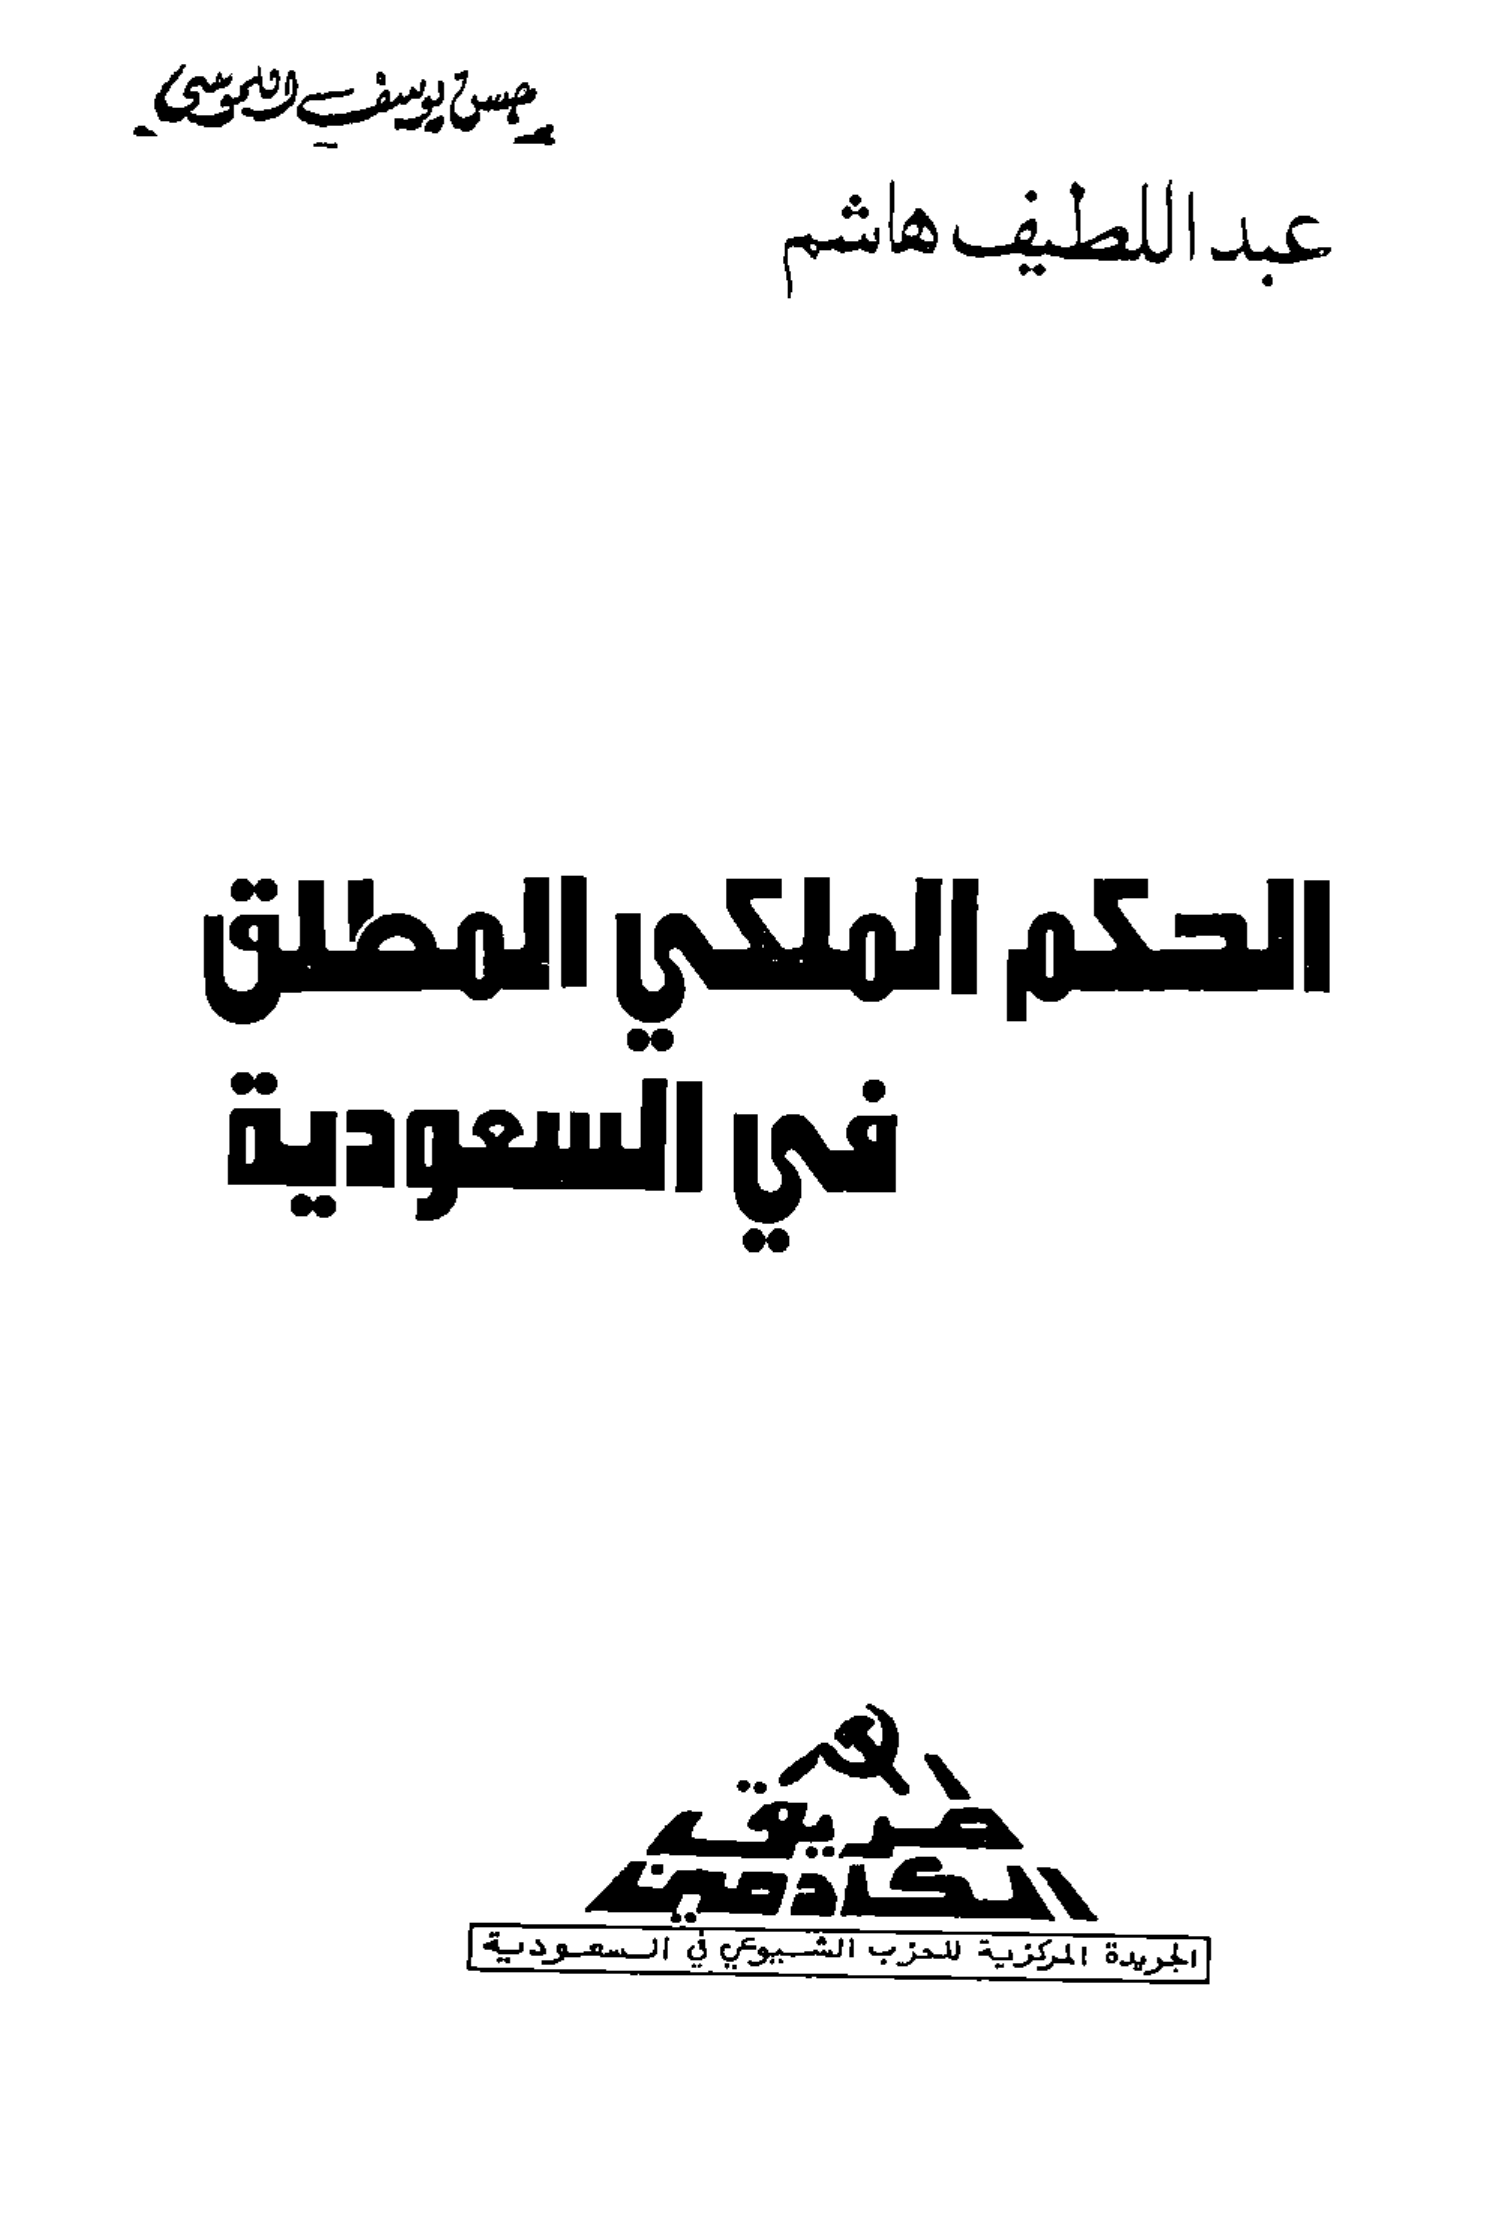 حسن يوسف
عبد اللطيف هاشم
الحكم الملكي المطلق
في السعودية
طريق
الكادحين
الجريدة المركزية للحزب الشيوعي في السعودية